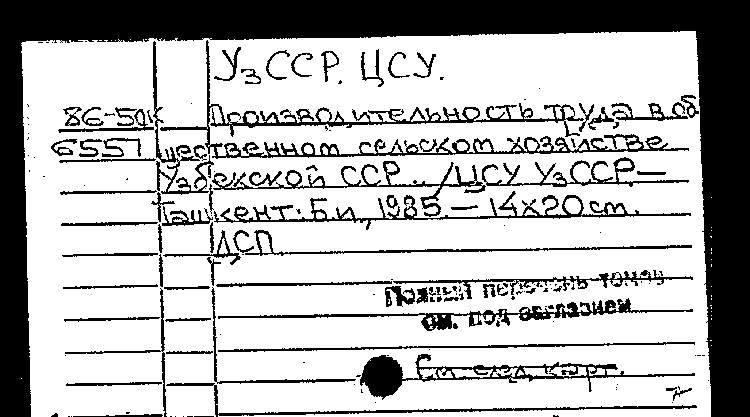 УзССР. ЦСУ.
86-50к Производительность труда в об
6557 щественном сельском хозяйстве
Узбекской ССР.. /ЦСУ УзССР.—
Ташкент: Б.и., 1985.— 14x20 см.
ДСП.
Полный перечень томов
см. под заглавием
См. след. карт.